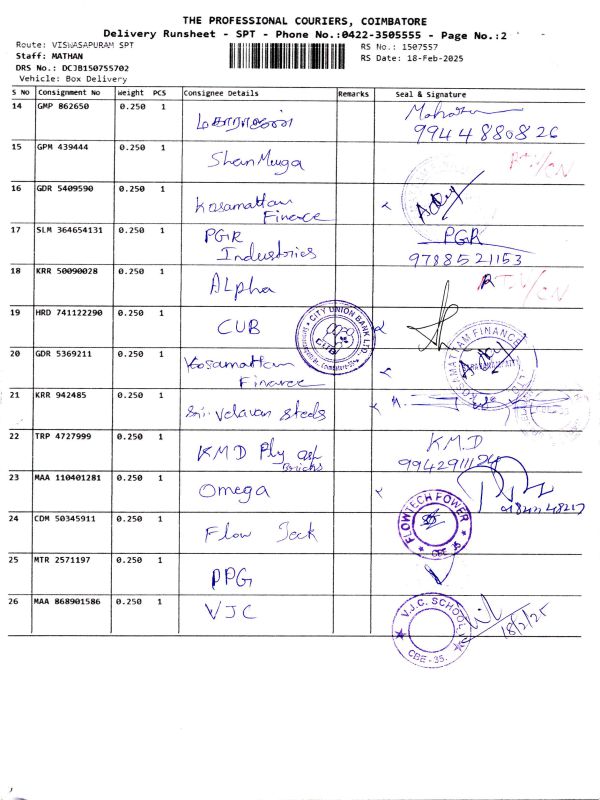 THE PROFESSIONAL COURIERS, COIMBATORE
Delivery Runsheet - SPT - Phone No.:0422-3505555 - Page No.:2
Route: VISWASAPURAM SPT
RS No.: 1507557
Staff: MATHAN
RS Date: 18-Feb-2025
DRS No.: DCJB150755702
Vehicle: Box Delivery
S No Consignment No Weight PCS Consignee Details Remarks Seal & Signature
14 GMP 862650 0.250 1
9944880826
15 GPM 439444 0.250 1 ShanMuga
16 GDR 5409590 0.250 1 Kosamattam
Finance
17 SLM 364654131 0.250 1 PGR PGR
Industries 9788521153
18 KRR 50090028 0.250 1 ALpha
19 HRD 741122290 0.250 1 CUB
CITY UNION BANK LTD.
20 GDR 5369211 0.250 1 Kosamattam
Finance
KOSAMATTAM FINANCE LTD
21 KRR 942485 0.250 1 Sri Velavan steels
22 TRP 4727999 0.250 1 KMD Ply ash KMD
Bricks
23 MAA 110401281 0.250 1 Omega
24 CDM 50345911 0.250 1 Flow Teck
FLOWTECH POWER
CBE 35
25 MTR 2571197 0.250 1 PPG
26 MAA 868901586 0.250 1 VJC
V.J.C. SCHOOL
CBE - 35.
18/2/25